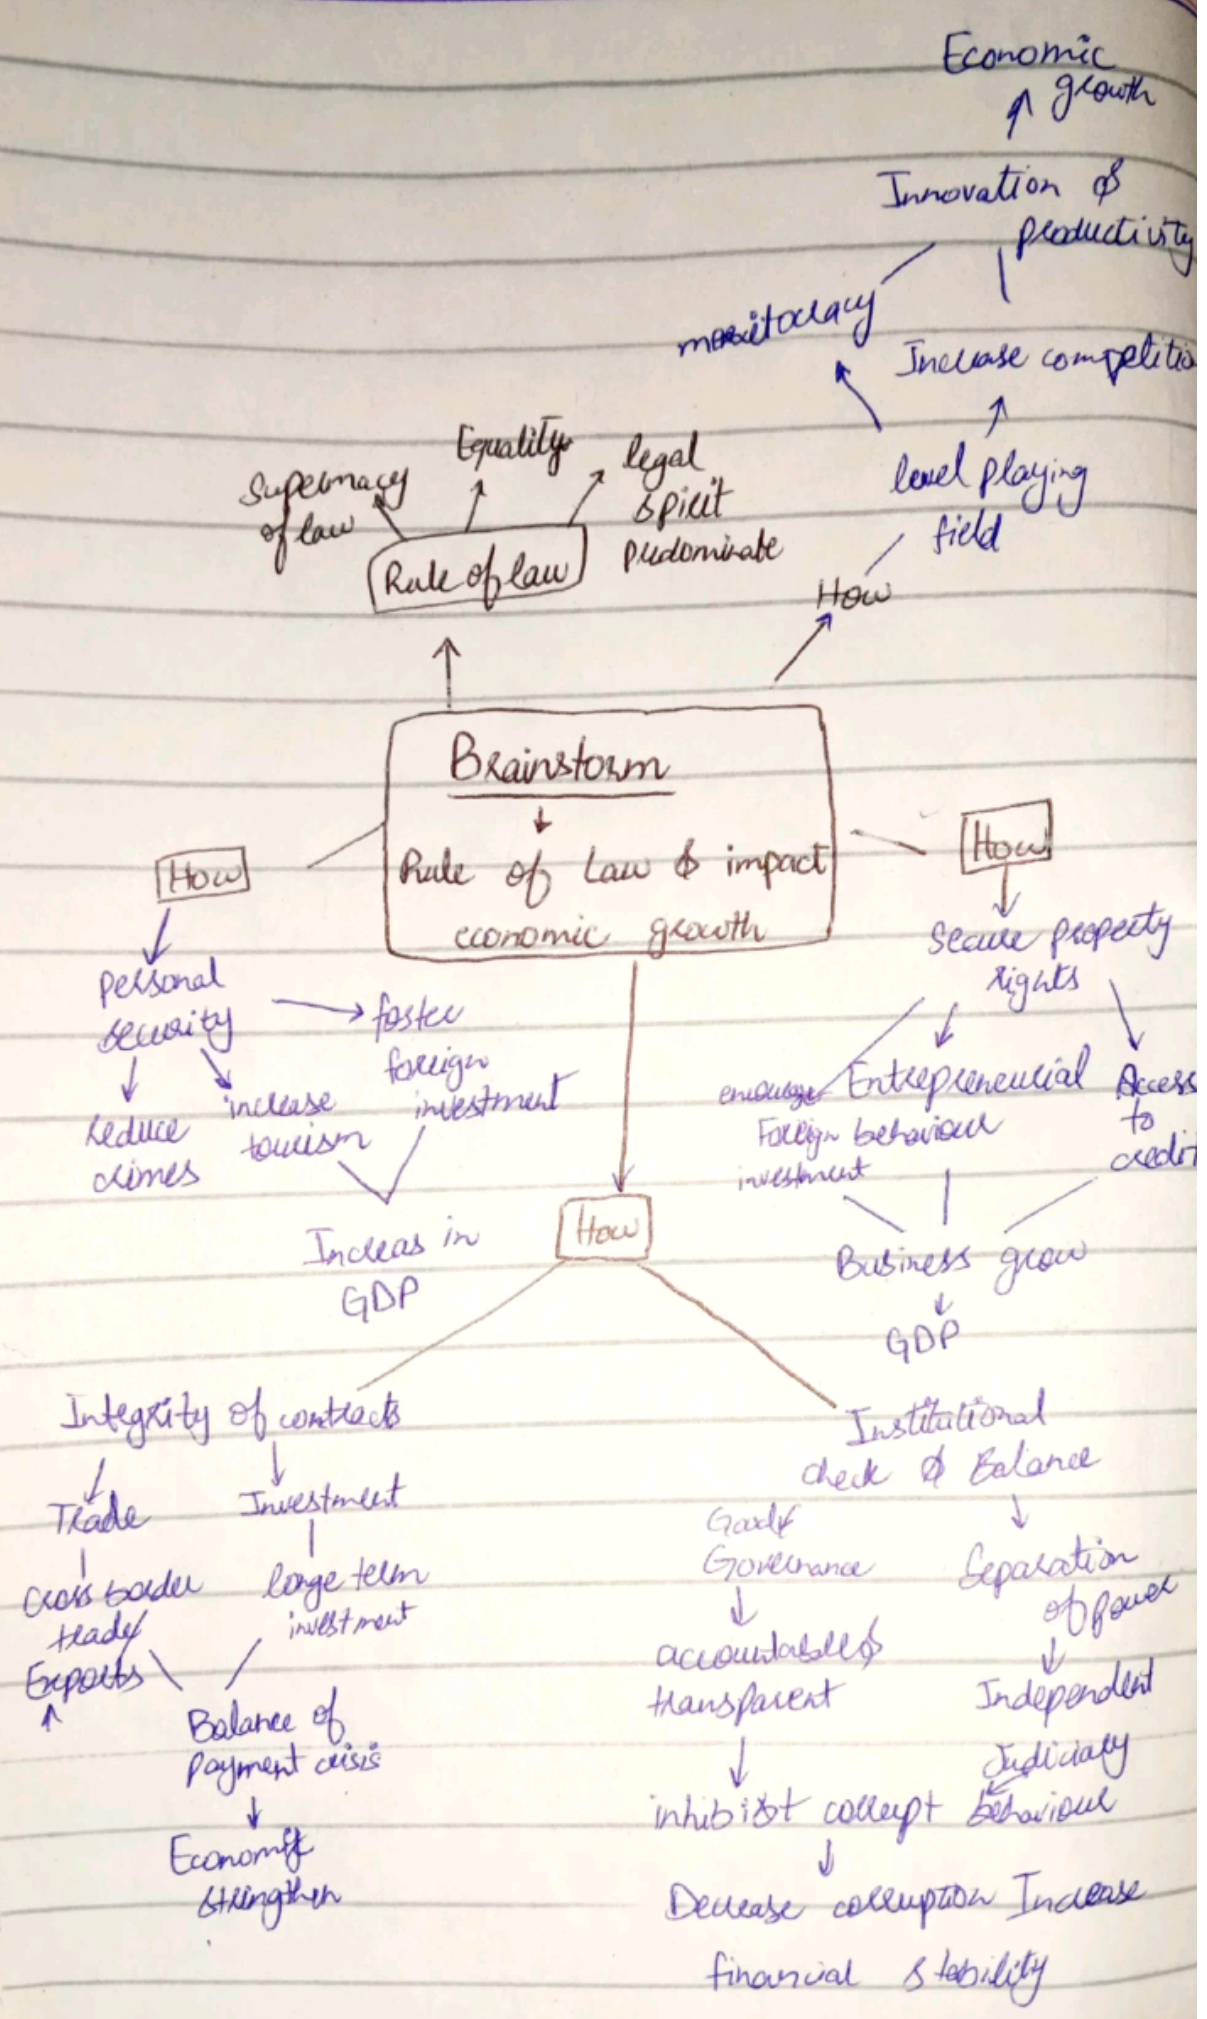 Economic
growth
Innovation &
productivity
meritocracy
Increase competitio
level playing
field
How
Equality
legal
spirit
predominate
Supermacy
of law
Rule of law
Brainstorm
Rule of Law & impact
economic growth
How
Personal
security
foster
foreign
investment
reduce
crimes
increase
tourism
Increas in
GDP
How
Secure property
rights
encourage
Foreign
investment
Entrepreneurial
behaviour
Access
to
credit
Business grow
GDP
How
Integrity of contracts
Trade
Cross border
trade
Exports
Investment
longe term
investment
Balance of
payment crisis
Economic
strengthen
Institutional
check & Balance
Good
Governance
accountable &
transparent
Separation
of power
Independent
Judiciary
inhibist corrupt behaviour
Decrease corruption Increase
financial stability